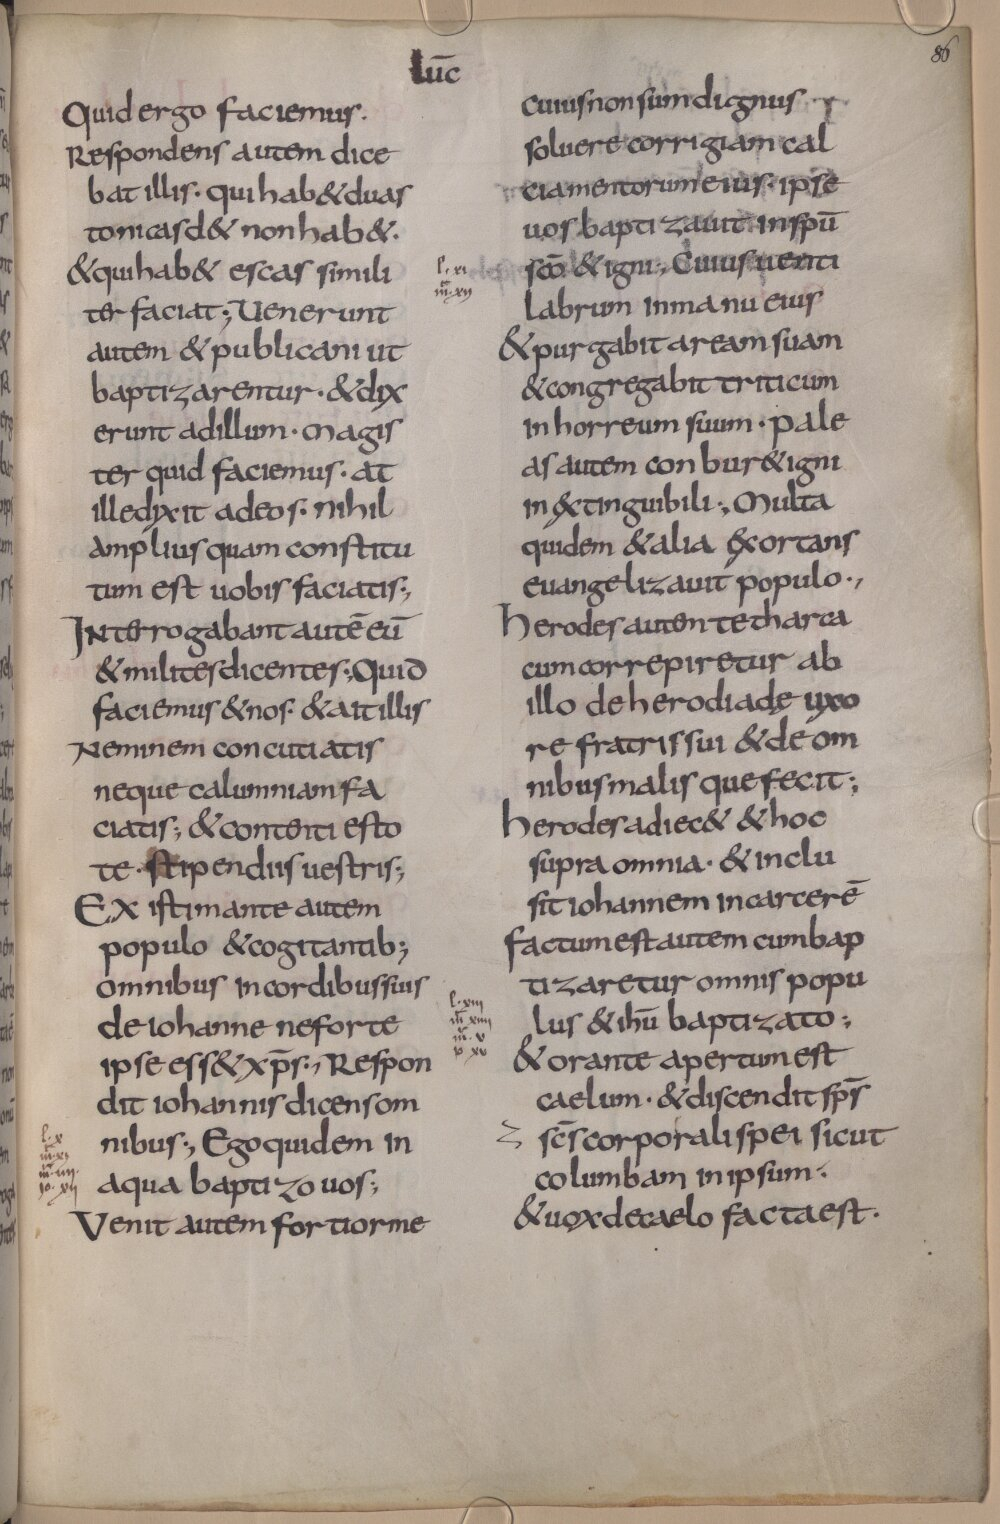 86
lūc
Quid ergo faciemus.
Respondens autem dice
bat illis· qui hab& duas
tonicas d& non hab&·
& qui hab& escas simili
ter faciat·; Uenerunt
autem & publicani ut
baptizarentur· & dix
erunt ad illum· Magis
ter quid faciemus· at
ille dixit ad eos· nihil
amplius quam constitu
tum est uobis faciatis·;
Interrogabant autē eū
& milites dicentes·; Quid
faciemus & nos· & ait illis
Neminem concutiatis
neque calumniam fa
ciatis·; & contenti esto
te· stipendiis uestris·;
Ex istimante autem
populo & cogitantib;
omnibus in cordibus suis
de iohanne ne forte
ipse ess& xp̄s·; Respon
dit iohannis dicens om
nibus·; Ego quidem in
aqua baptizo uos·;
Venit autem fortior me
l· x
cuius non sum dignus
soluere corrigiam cal
ciamentorum eius· ipse
uos baptizauit in sp̄u
sc̄o & igni·; Cuius uenti
labrum in manu eius
& purgabit aream suam
& congregabit triticum
in horreum suum· pale
as autem conbur& igni
in extinguibili·; Multa
quidem & alia exortans
euangelizauit populo·;
herodes autem tetharca
cum corriperetur ab
illo de herodiadę uxo
re fratris sui & de om
nibus malis que fecit·;
herodes adiec& & hoc
supra omnia· & inclu
sit iohannem in carcerē
factum est autem cum bap
tizaretur omnis popu
lus & ih̄u baptizato·;
& orante apertum est
caelum· & discendit sp̄s
sc̄s corporali spei sicut
columbam in ipsum·
& uox de caelo facta est·
l· xi
m̄· xii
l· xiii
m̄ xiiii
m̄· v